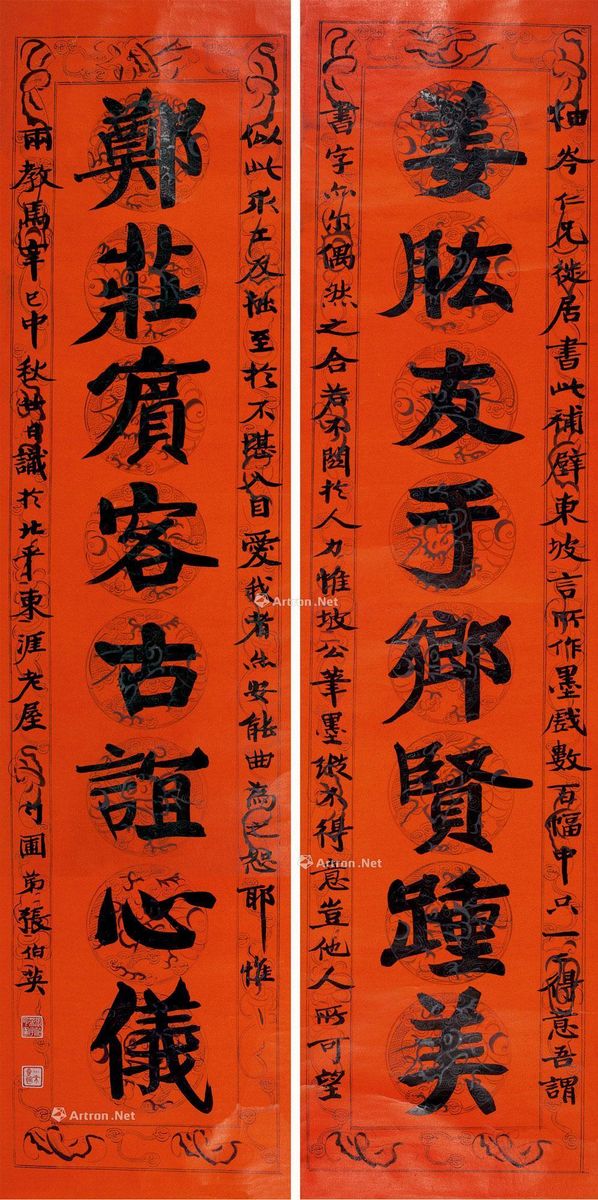 柚岑仁兄徙居書此補壁東坡言所作墨戲數百幅中只一二得意吾謂
姜肱友于鄉賢踵美
書字亦尔偶然之合若不關於人力惟坡公筆墨猶不得意豈他人所可望
似此求工反拙至於不堪入目愛我者亦安能曲為之恕耶惟
鄭莊賓客古誼心儀
兩教焉辛巳中秋廿日識於北平東涯老屋 竹圃弟張伯英
Artron.Net
Artron.Net
Artron.Net